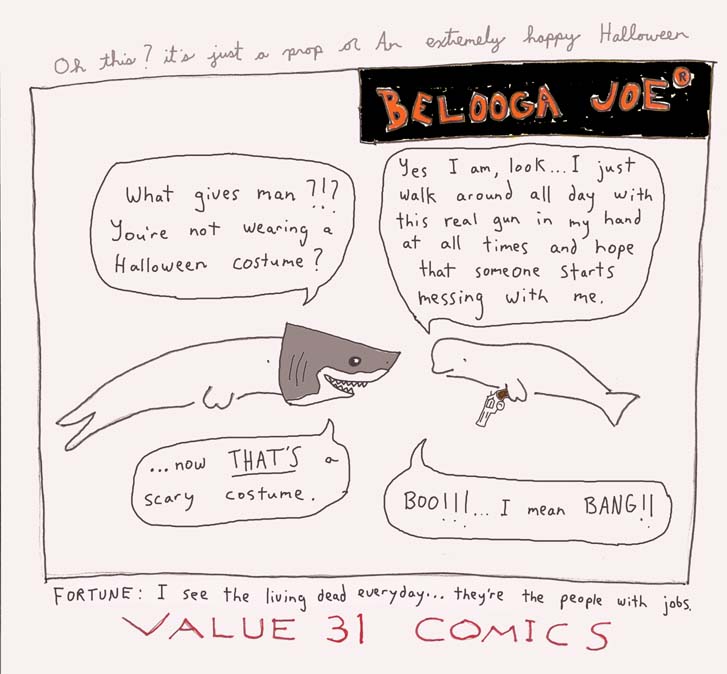 Oh this? it's just a prop or An extremely happy Halloween
BELOOGA JOE®
What gives man?!?
You're not wearing a
Halloween costume?
Yes I am, look...I just
walk around all day with
this real gun in my hand
at all times and hope
that someone starts
messing with me.
...now THAT'S a
scary costume.
BOO!!!... I mean BANG!!
FORTUNE: I see the living dead everyday... they're the people with jobs.
VALUE 31 COMICS